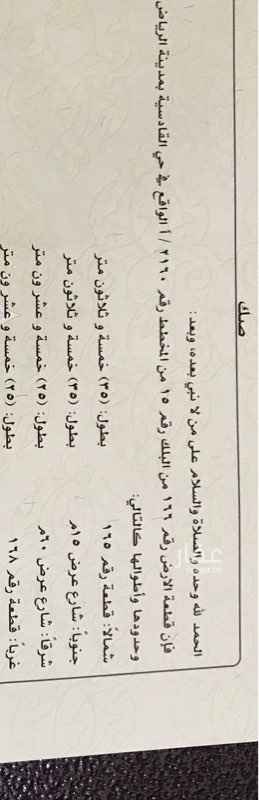 صك
الحمد لله وحده والصلاة والسلام على من لا نبي بعده، وبعد:
فإن قطعة الارض رقم ١٦٦ من البلك رقم ١٥ من المخطط رقم ٢١٦٠ / أ الواقع في حي القادسية بمدينة الرياض
وحدودها وأطوالها كالتالي:
شمالاً: قطعة رقم ١٦٥ بطول: (٣٥) خمسة و ثلاثون متر
جنوباً: شارع عرض ١٥م بطول: (٣٥) خمسة و ثلاثون متر
شرقاً: شارع عرض ٦٠م بطول: (٢٥) خمسة و عشرون متر
غرباً: قطعة رقم ١٦٨ بطول: (٢٥) خمسة و عشرون متر
عقار